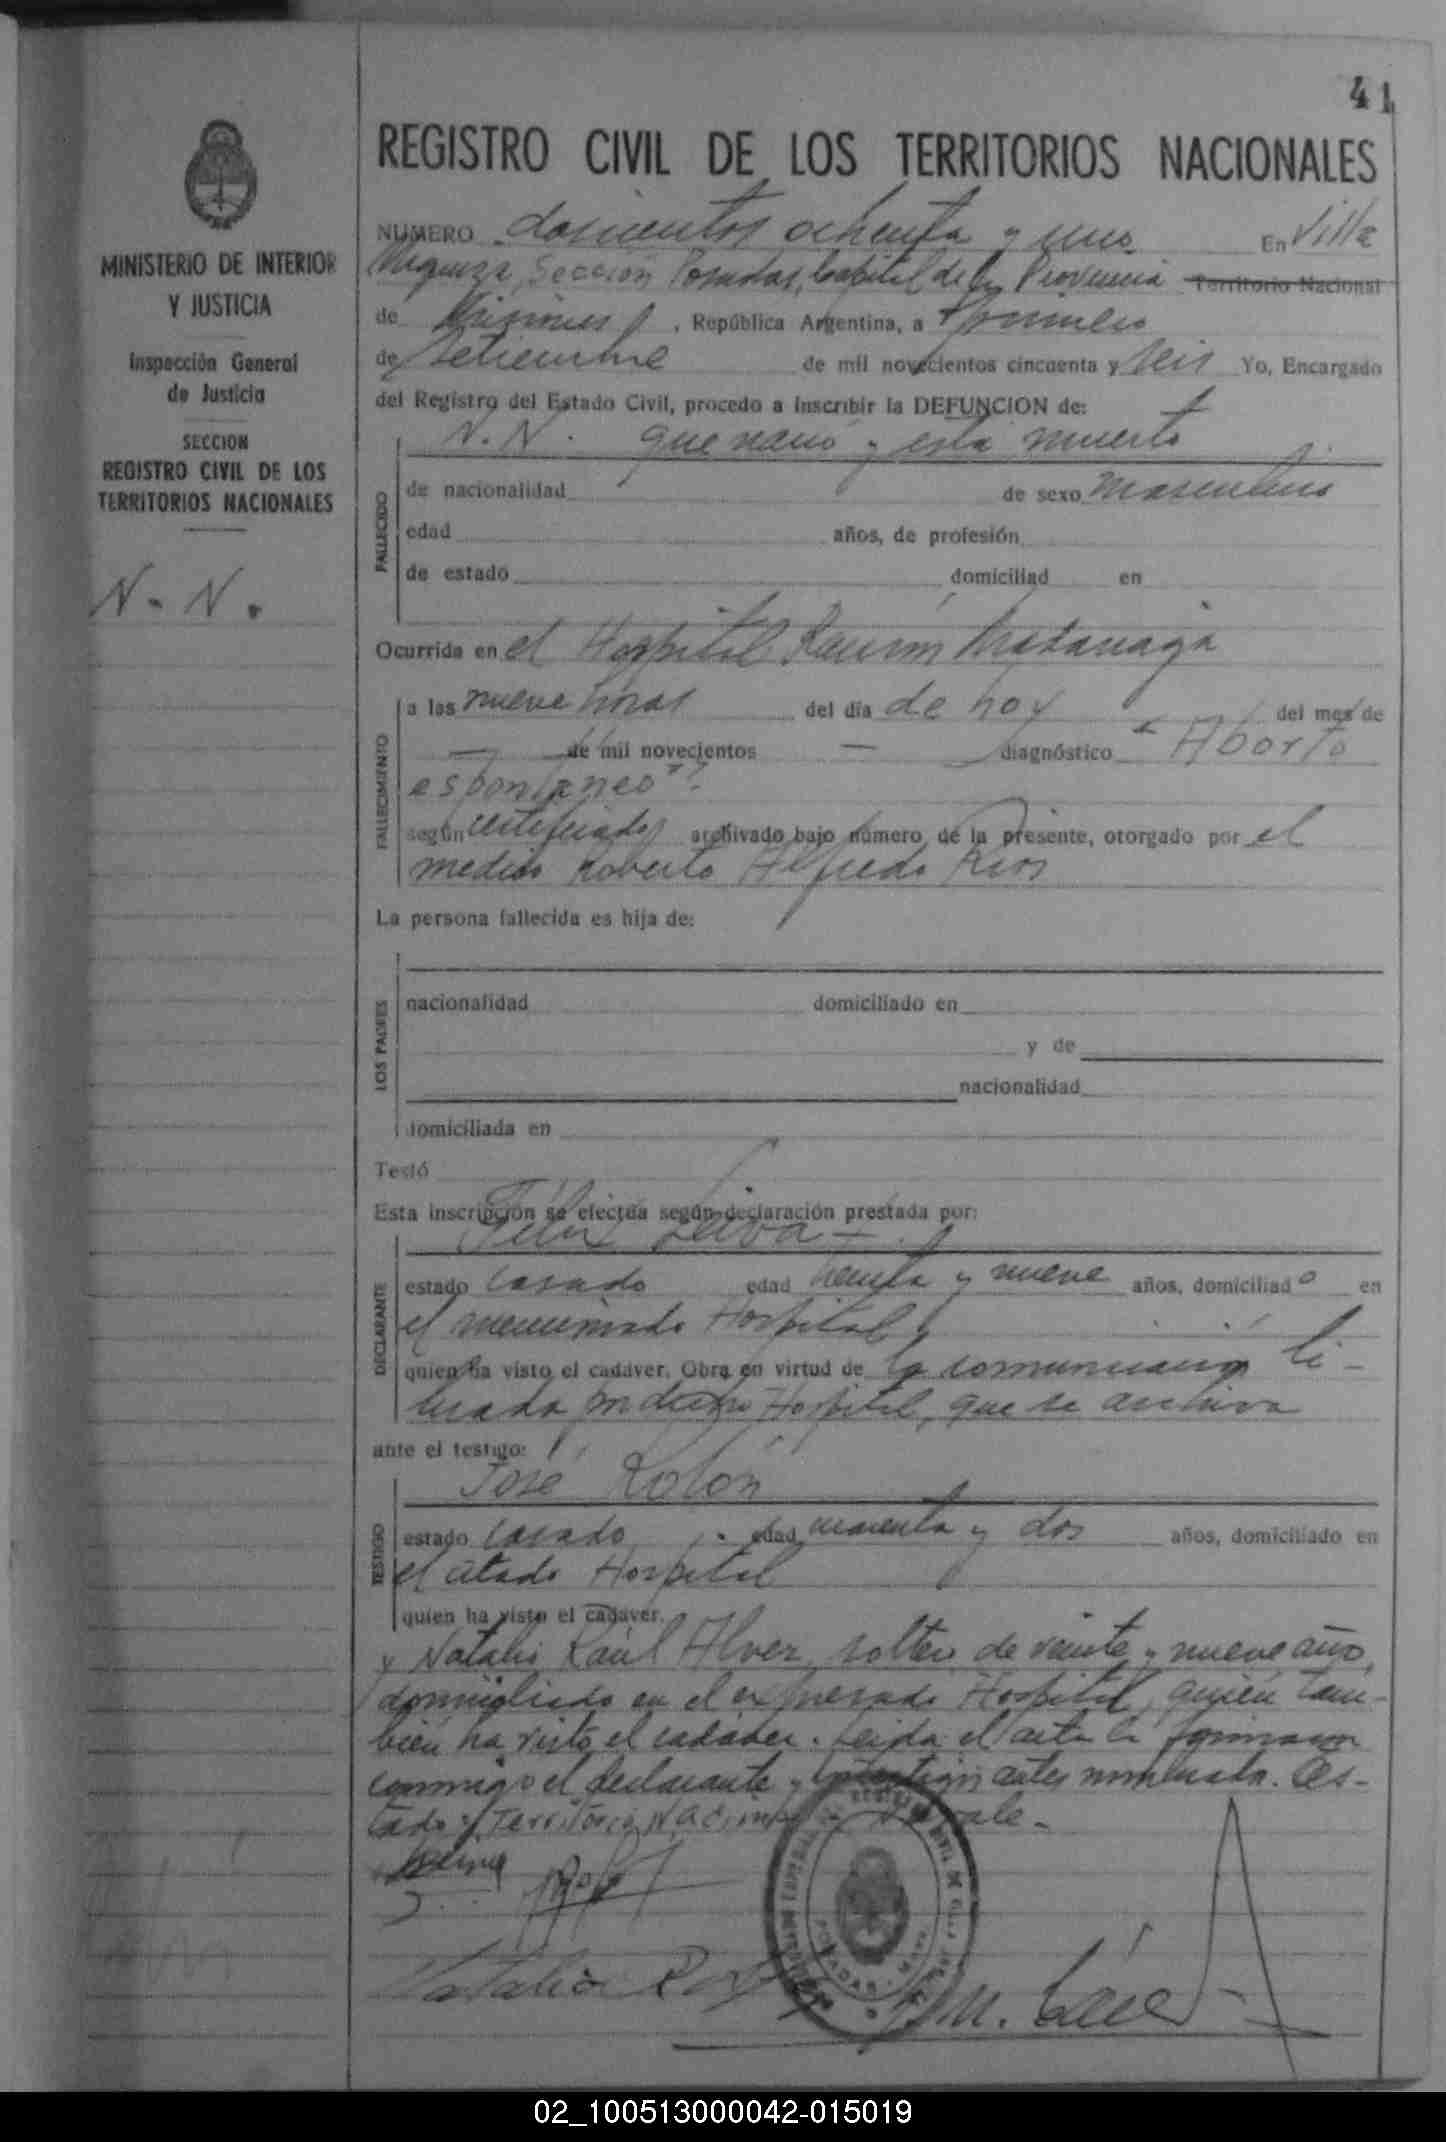 41
MINISTERIO DE INTERIOR
Y JUSTICIA
Inspección General
de Justicia
SECCION
REGISTRO CIVIL DE LOS
TERRITORIOS NACIONALES
N. N.
REGISTRO CIVIL DE LOS TERRITORIOS NACIONALES
NUMERO doscientos ochenta y uno En Villa
Sección Posadas, Capital de la Provincia Territorio Nacional
de Misiones, República Argentina, a primero
de setiembre de mil novecientos cincuenta y seis Yo, Encargado
del Registro del Estado Civil, procedo a inscribir la DEFUNCION de:
N. N. que nació y está muerto
FALLECIDO
de nacionalidad de sexo masculino
edad años, de profesión
de estado domiciliad en
Ocurrida en el Hospital Ramón Madariaga
FALLECIMIENTO
a las nueve horas del día de hoy del mes de
— de mil novecientos — diagnóstico "Aborto
espontáneo"
según certificado archivado bajo número de la presente, otorgado por el
medico Roberto Alfredo Rios
La persona fallecida es hija de:
LOS PADRES
nacionalidad domiciliado en
y de
nacionalidad
domiciliada en
Testó
Esta inscripción se efectúa según declaración prestada por:
Félix Leiva
DECLARANTE
estado casado edad treinta y nueve años, domiciliado en
el mencionado Hospital
quien ha visto el cadáver. Obra en virtud de la comunicación li-
brada por dicho Hospital, que se archiva
ante el testigo:
José Rolón
TESTIGO
estado casado edad cuarenta y dos años, domiciliado en
el citado Hospital
quien ha visto el cadáver.
y Natalio Raúl Alvez, soltero de veinte y nueve años,
domiciliado en el expresado Hospital, quien tam-
bién ha visto el cadáver. Leída el acta la firmaron
conmigo el declarante y los testigos antes nombrados. Tes-
tado: Territorio Nacional No vale.
Leiva
Natalio R
02_100513000042-015019